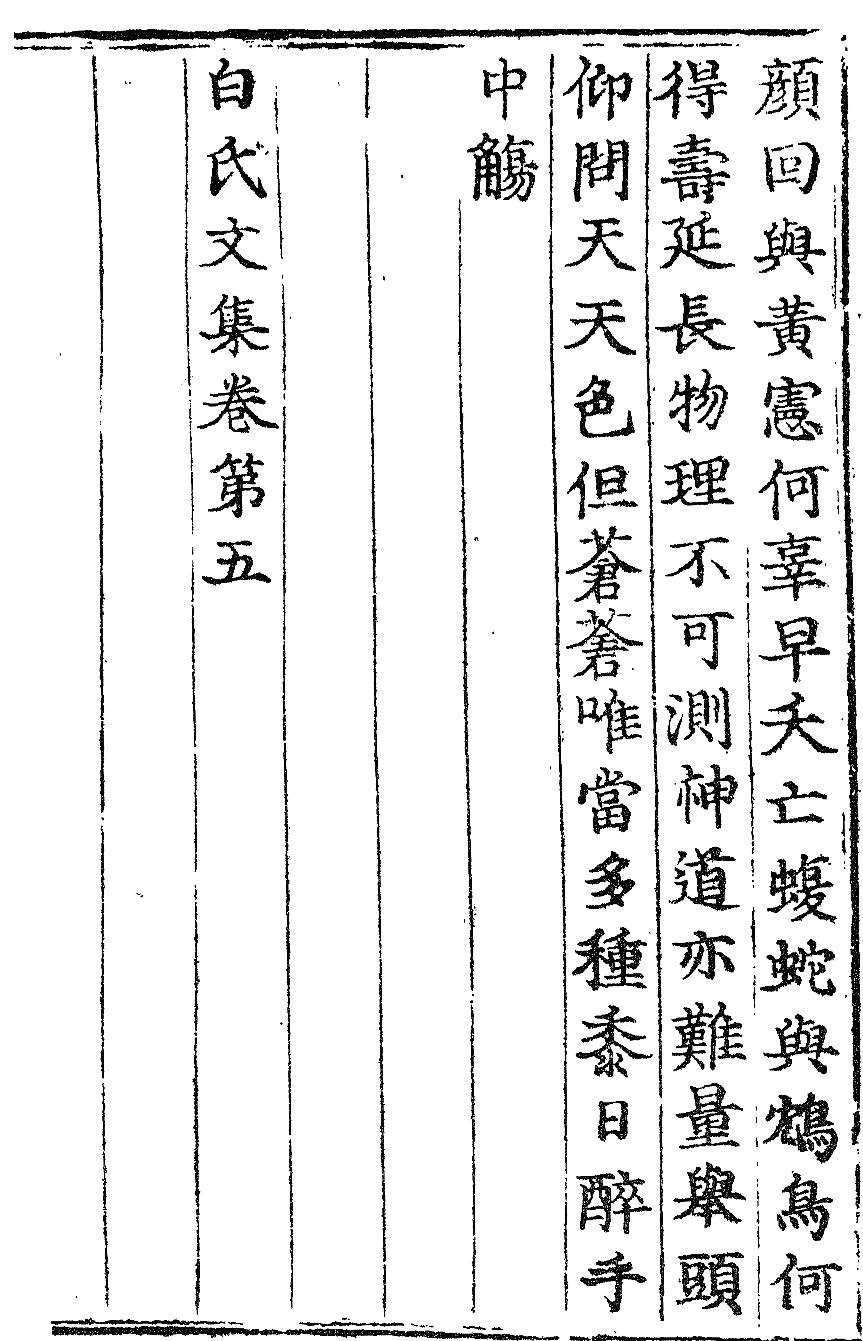 顔回與黃憲何辜早夭亡蝮蛇與鴆鳥何
得壽延長物理不可測神道亦難量舉頭
仰問天天色但蒼蒼唯當多種黍日醉手
中觴
白氏文集卷第五